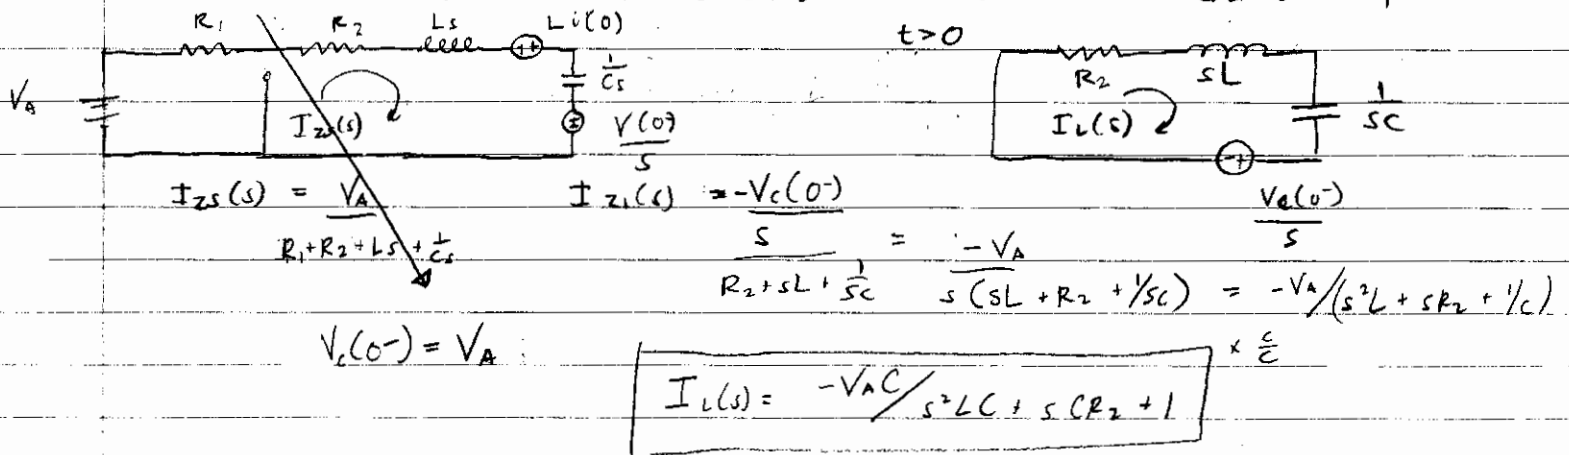 R₁ R₂ Ls Li(0)
t>0
V_A
1/Cs
R₂ sL
I_zs(s)
V(0)/s
I_L(s)
1/sC
I_zs(s) = V_A / (R₁+R₂+Ls+1/Cs)
I_zi(s) = (-V_c(0-)/s) / (R₂+sL+1/sC) = -V_A / (s(sL+R₂+1/sC)) = -V_A/(s²L+sR₂+1/C)
V_c(0-)/s
V_c(0-) = V_A
× C/C
I_L(s) = -V_A C/s²LC + sCR₂ + 1